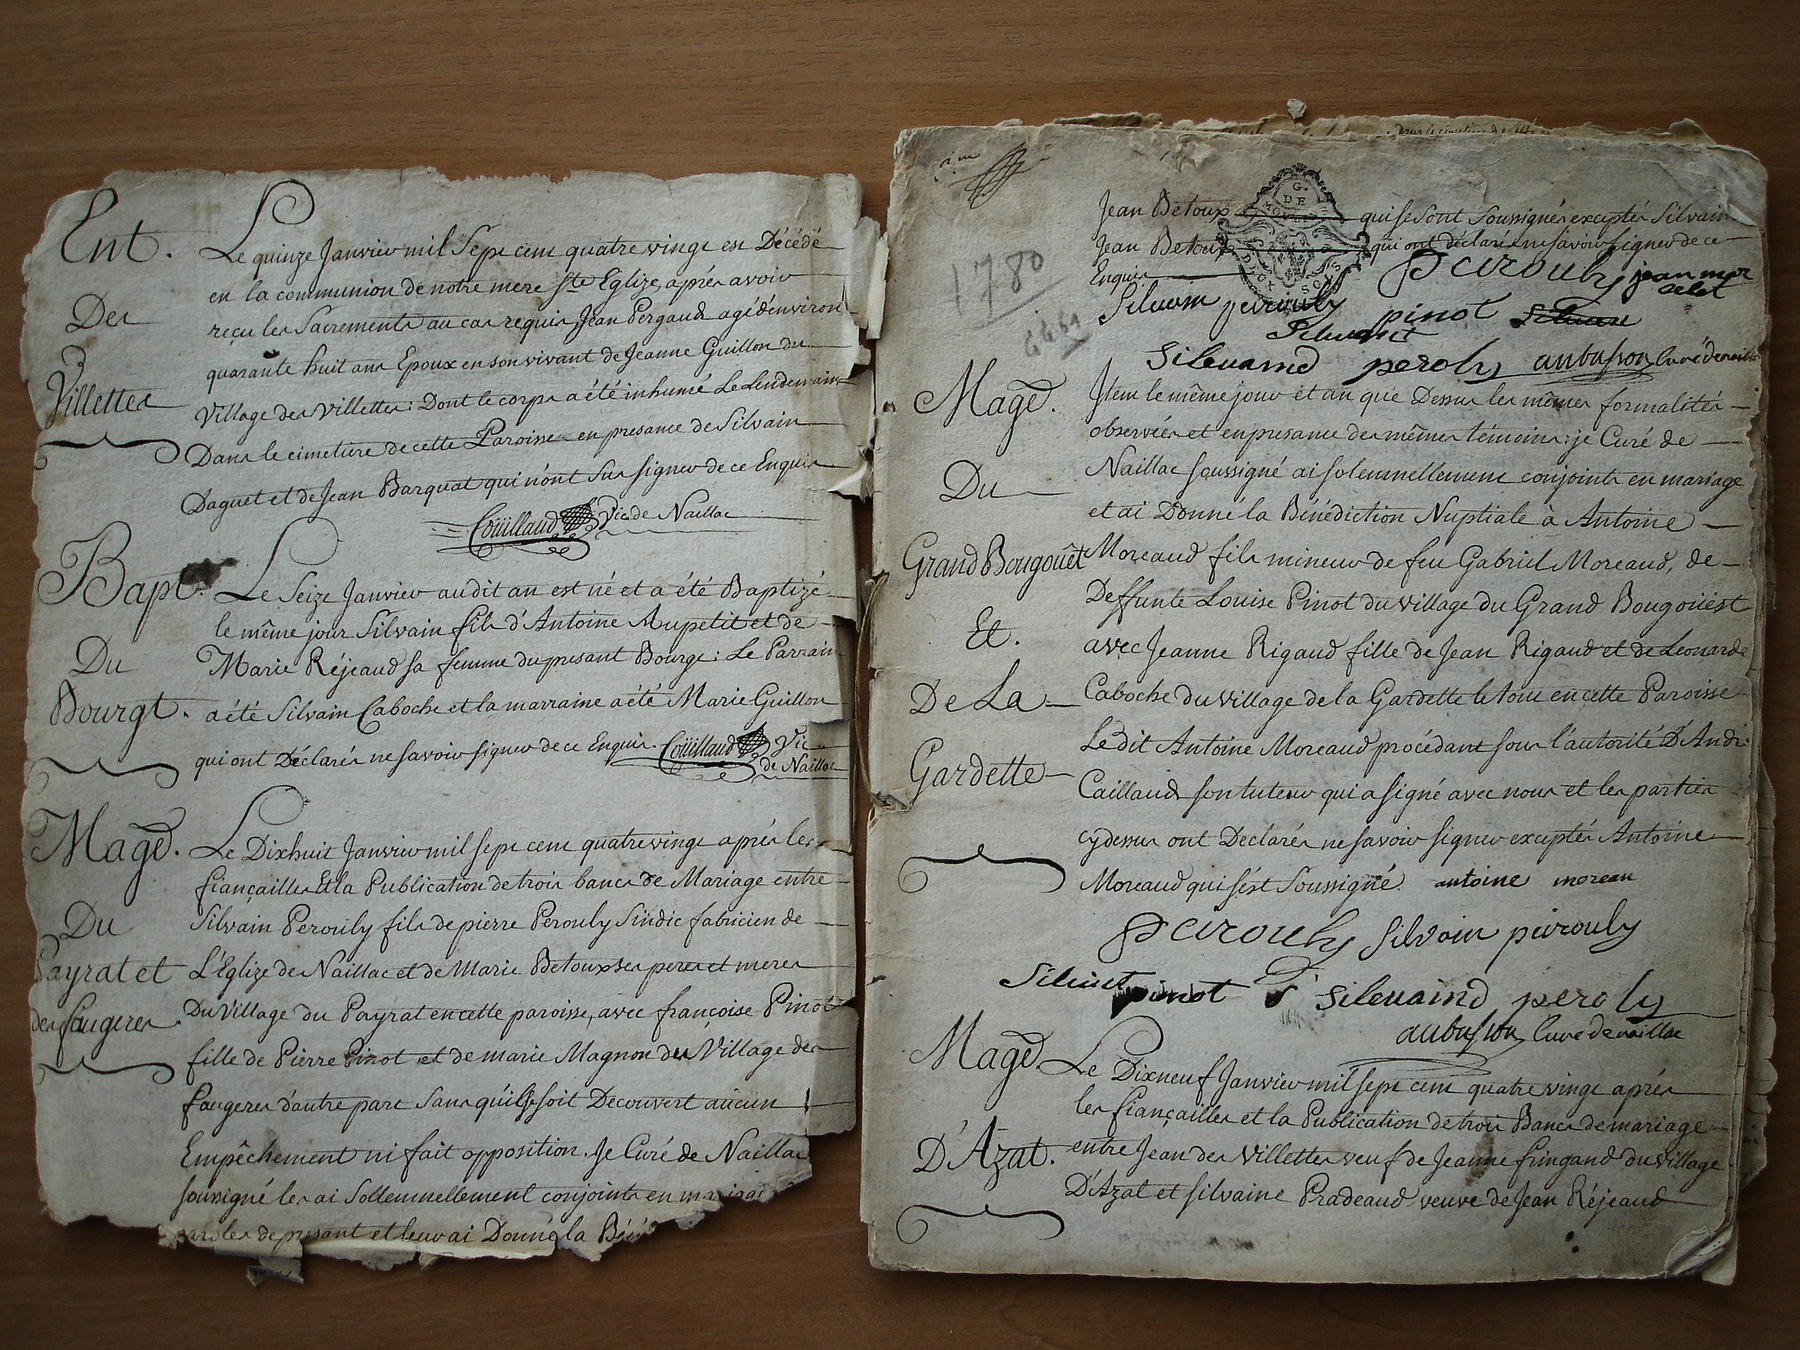 Ent.
Des
Villettes
Le quinze Janvier mil sept cent quatre vingt est Décédé
en la communion de notre mere Ste Eglize, aprés avoir
reçu les Sacrements au cas requis Jean Pergaud agé d'environ
quarante huit ans Epoux en son vivant de Jeanne Guillon du
Village des Villettes: Dont le corps a été inhumé Le Lendemain
Dans le cimetiere de cette Paroisse en presance de Silvain
Daguet et de Jean Barquat qui n'ont Sus signer de ce Enquis
Coüillaud Vic de Naillac
Bapt.
Du
Bourgt.
Le Seize Janvier audit an est né et a été Baptizé
le même jour Silvain fils d'Antoine Aupetit et de
Marie Réjeaud sa femme du presant Bourgt: Le Parrain
a été Silvain Caboche et la marraine a été Marie Guillon
qui ont Déclarés ne savoir signer de ce Enquis. Coüillaud Vic
de Naillac
Mage.
Du
Payrat et
des faugeres
Le Dixhuit Janvier mil sept cent quatre vingt aprés les
fiançailles Et la Publication de trois bancs de Mariage entre
Silvain Perouly fils de pierre Perouly Sindic fabricien de
L'Eglize de Naillac et de Marie Betoux ses peres et meres
Du Village du Payrat en cette paroisse, avec françoise Pinot
fille de Pierre Pinot et de marie Magnon du Village des
faugeres d'autre part Sans qu'il se soit Decouvert aucun
Empêchement ni fait opposition. Je Curé de Naillac
soussigné les ai Sollemnellement conjoints en mariage
paroles de presant et leur ai Donné la Bé
1780
G. DE MOULINS
DEUX SOLS
Jean Betoux qui se sont Soussignés exceptés Silvain
Jean Betoux qui ont déclaré ne savoir signer de ce
Enquis
perouly jean mer
Silvain perouly pinot
silevaind peroly aubusson curé de naillac
Mage.
Du
Grand Bougoüet
Et.
De La
Gardette
Item le même jour et an que Dessus les mêmes formalités
observées et en presance des mêmes témoins: je Curé de
Naillac soussigné ai solemnellement conjoints en mariage
et ai Donné la Bénédiction Nuptiale à Antoine
Moreaud fils mineur de feu Gabriel Moreaud, de
Deffunte Louise Pinot du village du Grand Bougoüest
avec Jeanne Rigaud fille de Jean Rigaud et de Leonarde
Caboche du village de la Gardette le tout en cette Paroisse
Ledit Antoine Moreaud procédant sous l'autorité D'André
Caillaud son tuteur qui a signé avec nous et les parties
cy dessus ont Declarés ne savoir signer exceptés Antoine
Moreaud qui s'ést Soussigné. antoine moreau
perouly silvain pirouly
pinot silevaind peroly
aubusson Curé de naillac
Mage
D'Azat.
Le Dixneuf Janvier mil sept cent quatre vingt aprés
les fiançailles et la Publication de trois Bancs de mariage
entre Jean des Villettes veuf de Jeanne fringand du village
D'Azat et silvaine Pradeaud veuve de Jean Réjeaud